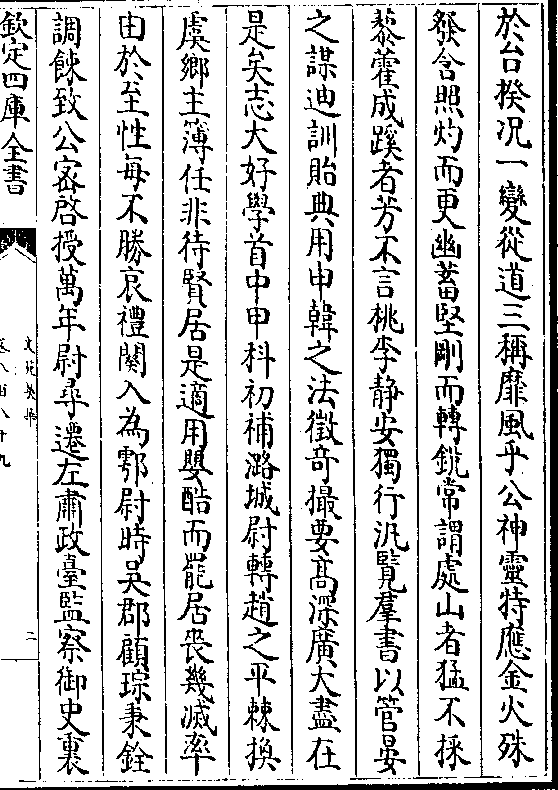 於台揆况一變從道三稱靡風乎公神靈特應金火殊
發含照灼而更幽蓄堅剛而轉銳常謂處山者猛不採
藜藿成蹊者芳不言桃李静安獨行汎覽羣書以管晏
之謀迪訓貽典用申韓之法徵竒撮要髙深廣大盡在
是矣志大好學首中甲科初補潞城尉轉趙之平棘換
虞鄉主簿任非待賢居是適用嬰酷而罷居喪幾滅率
由於至性每不勝哀禮闋入為鄠尉時吳郡顧琮秉銓
調餗致公宻啓授萬年尉尋遷左肅政臺監察御史裏
欽定四庫全書
文苑英華
卷八百八十九
二